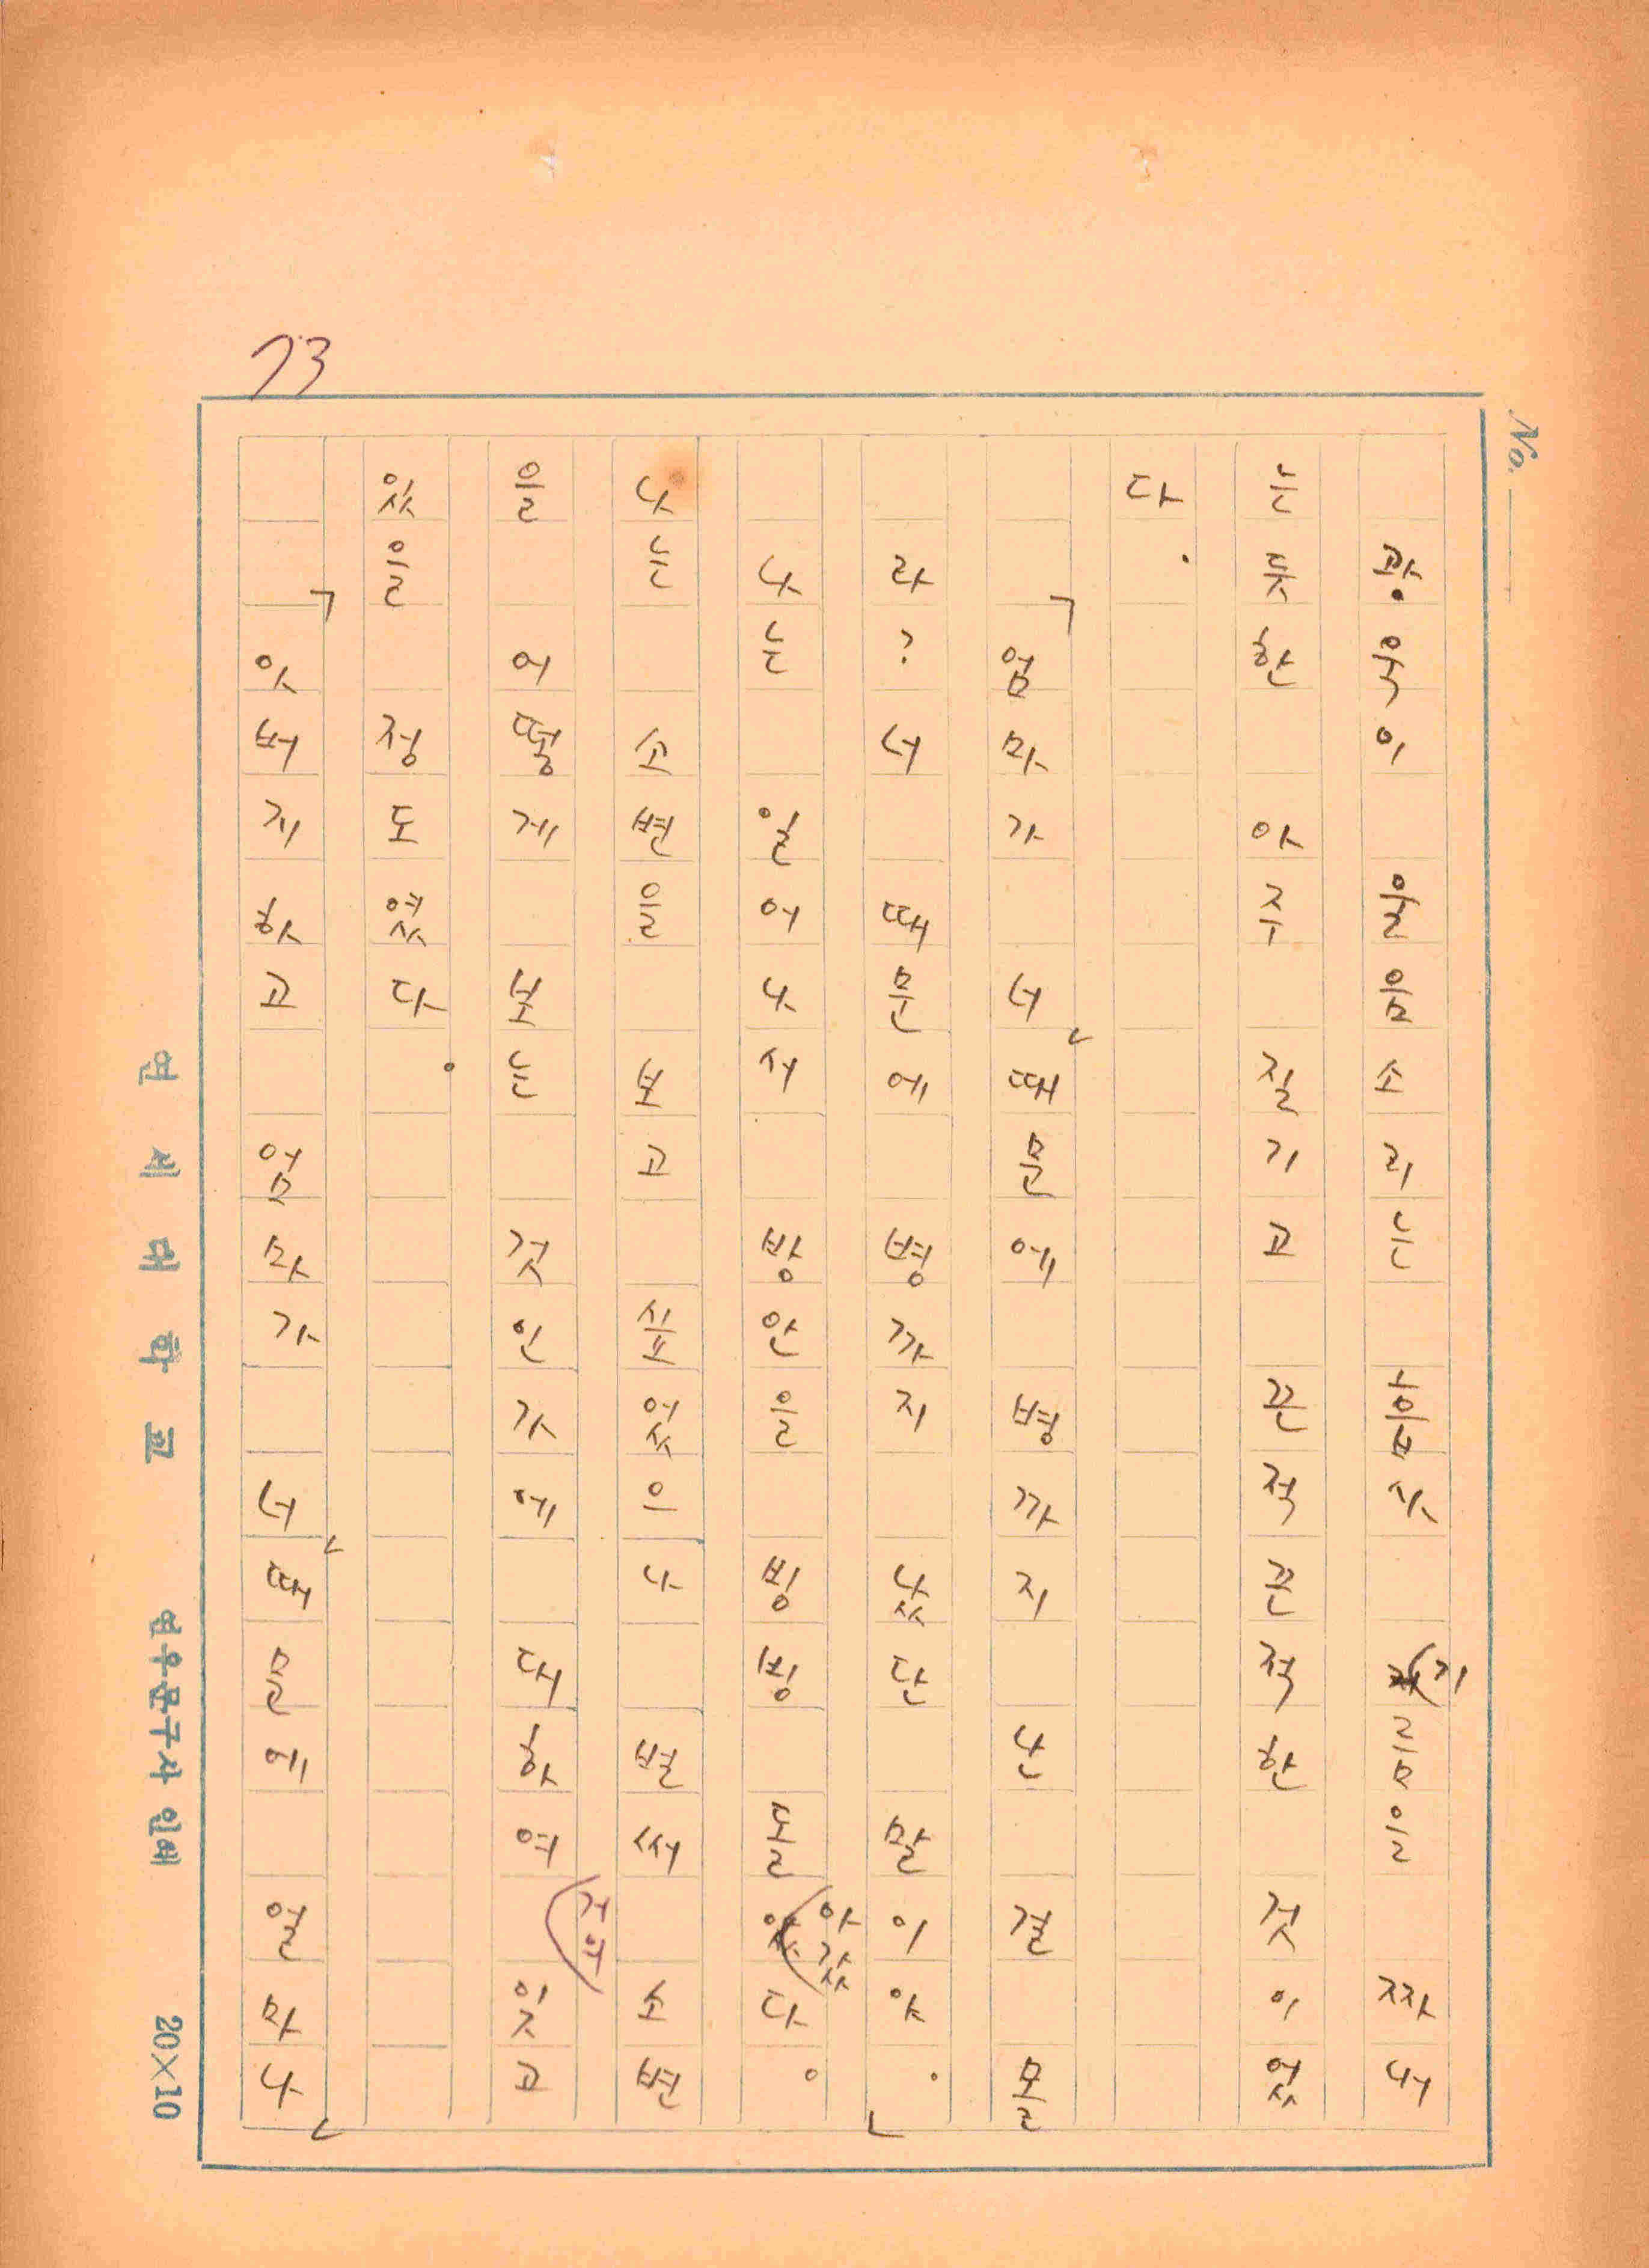 73
No.
광욱이 울음소리는 흡사 기름을 짜내
는 듯한 아주 질기고 끈적끈적한 것이었
다.
「엄마가 너 때문에 병까지 난 걸 몰
라? 너 때문에 병까지 났단 말이야.」
나는 일어나서 방안을 빙빙 돌아갔다.
나는 소변을 보고 싶었으나 벌써 소변
을 어떻게 보는 것인가에 대하여 전혀 잊고
있을 정도였다.
「아버지하고 엄마가 너 때문에 얼마나
연세대학교 연우문구사 인쇄 20×10